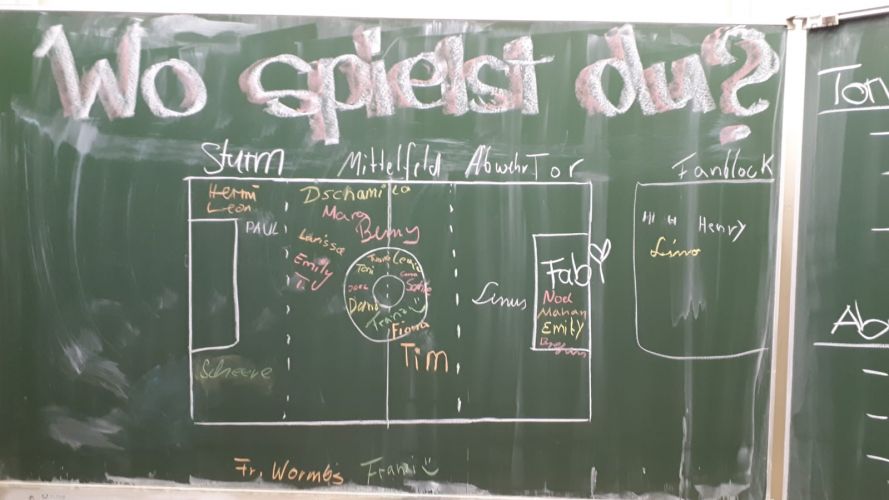 Wo spielst du?
Sturm Mittelfeld Abwehr Tor Fanblock
Hermi
Leon
PAUL
Scheere
Dschamila
Marg
Bemy
Larissa
Emily
T.
Toni
Lena
Sofie
Dami
Franzi
Fiona
Tim
Linus
Fab
Noel
Mahan
Emily
Hi H Henry
Limo
Fr. Wormbs Franzi
Tor
Ab